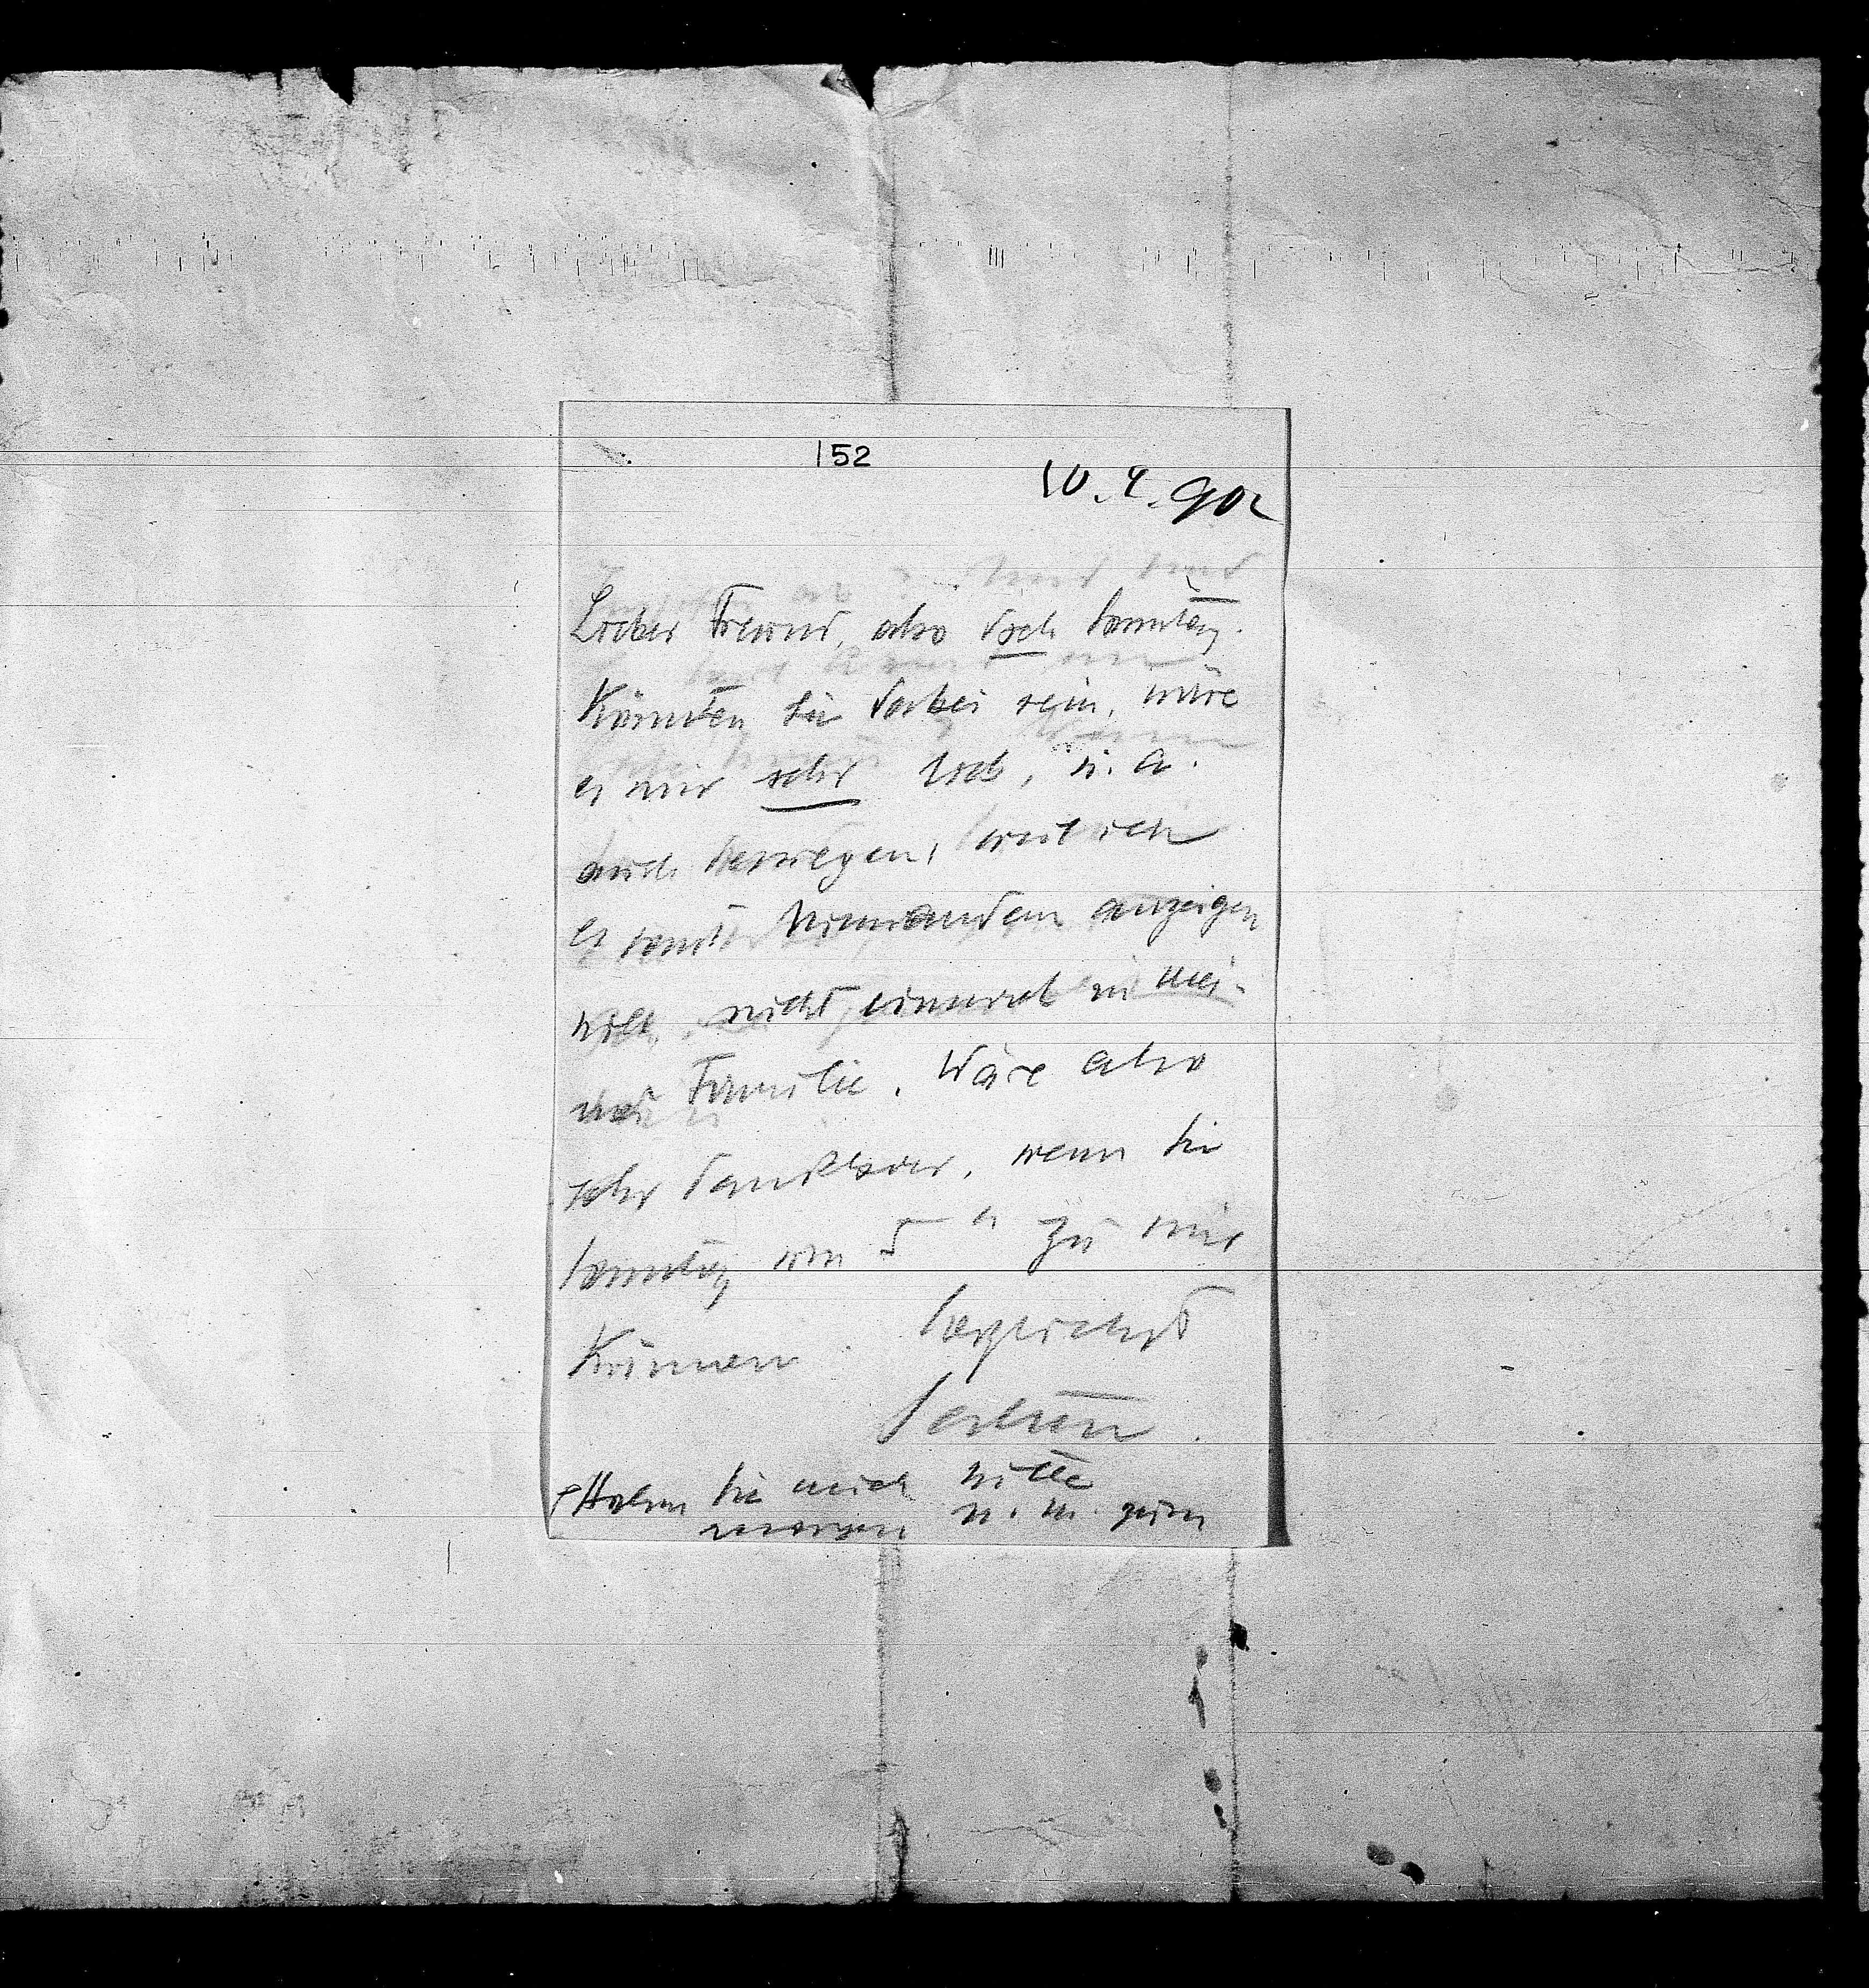 152
10. 4. 902
Lieber Freund, also doch Sonntag.
Könnten Sie dabei sein, wäre
es mir sehr lieb, u. a.
auch deswegen, weil ich
es sonst Niemandem anzeigen
will, nicht einmal in mei-
ner Familie. Wäre also
sehr dankbar, wenn Sie
Sonntag um 5 h zu mir
kämen. Herzlichst
Harden.
Haben Sie mich bitte
morgen n. m. gern